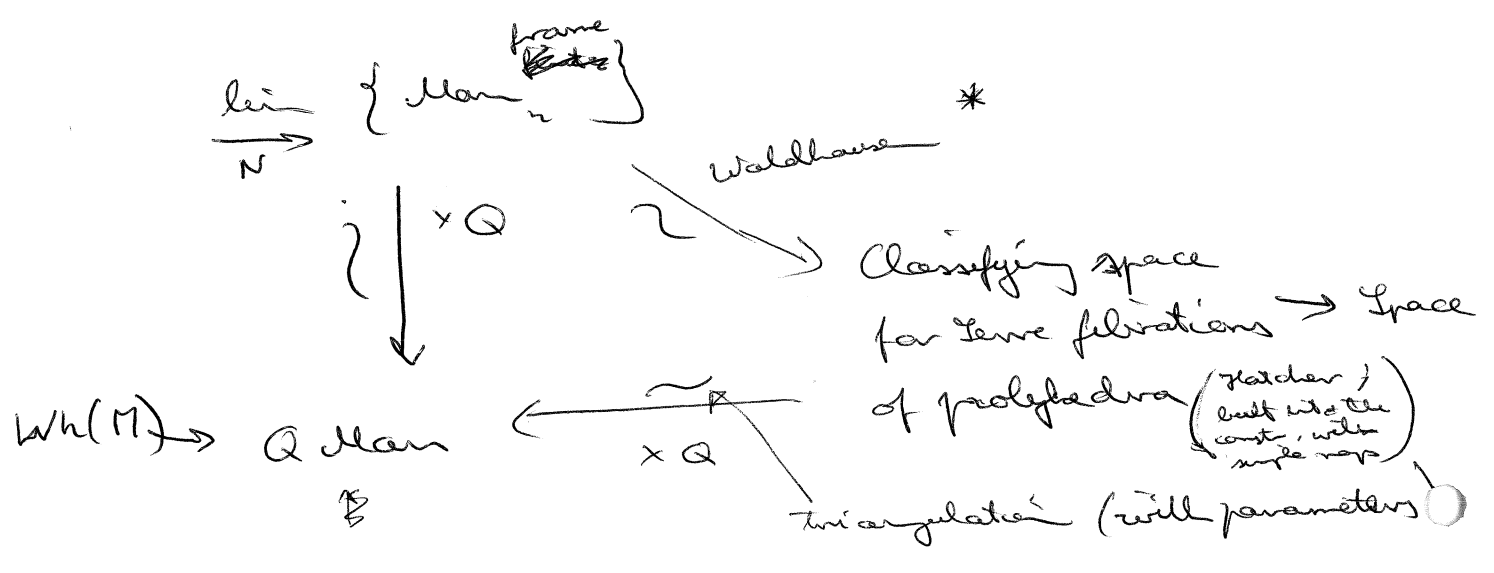 frame
lim { Man n }
N
*
Waldhausen
× Q
Classifying space
for Serre fibrations → Space
of polyhedra (Hatcher,
built into the
constr, with
simple maps)
Wh(M) → Q Man
× Q
triangulation (with parameters